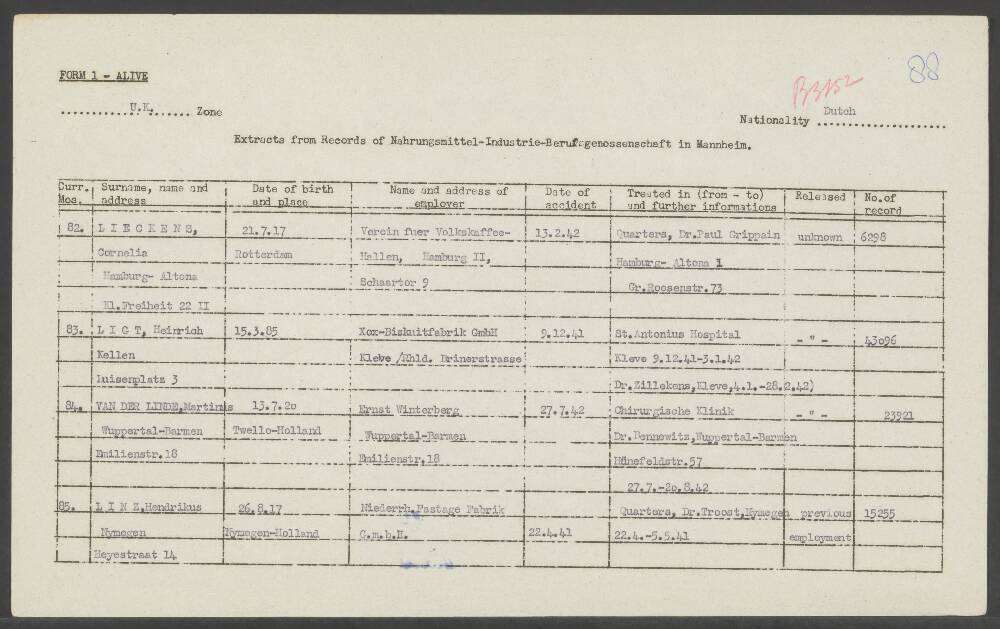 88
FORM 1 - ALIVE
B3152
U.K. Zone
Nationality Dutch
Extracts from Records of Nahrungsmittel-Industrie-Berufsgenossenschaft in Mannheim.
Curr. Surname, name and Date of birth Name and address of Date of Treated in (from - to) Released No.of
Nos. address and place employer accident and further informations record
82. LIECKENS, 21.7.17 Verein fuer Volkskaffee- 13.2.42 Quarters, Dr.Paul Grippain unknown 6298
Cornelis Rotterdam Hallen, Hamburg II, Hamburg- Altona 1
Hamburg- Altona Schaartor 9 Gr.Roosenstr.73
Kl.Freiheit 22 II
83. LIGT, Heinrich 15.3.85 Kox-Biskuitfabrik GmbH 9.12.41 St.Antonius Hospital - " - 43o96
Kellen Kleve /Rhld. Brinerstrasse Kleve 9.12.41-3.1.42
Luisenplatz 3 Dr.Zillekens,Kleve,4.1.-28.2.42)
84. VAN DER LINDE,Martinus 13.7.2o Ernst Winterberg 27.7.42 Chirurgische Klinik - " - 23921
Wuppertal-Barmen Twello-Holland Wuppertal-Barmen Dr.Bennewitz,Wuppertal-Barmen
Emilienstr.18 Emilienstr.18 Hünefeldstr.57
27.7.-2o.8.42
85. LINZ,Hendrikus 26.8.17 Niederrh.Pastage Fabrik Quarters, Dr.Troost,Nymegen previous 15255
Nymegen Nymegen-Holland G.m.b.H. 22.4.41 22.4.-5.5.41 employment
Heyestraat 14